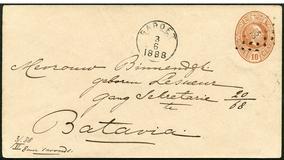 GAROET
3
6
1888
10
Mevrouw Binnendyk
geboren Lesueur
Gang Secretarie 20/08
te
Batavia.